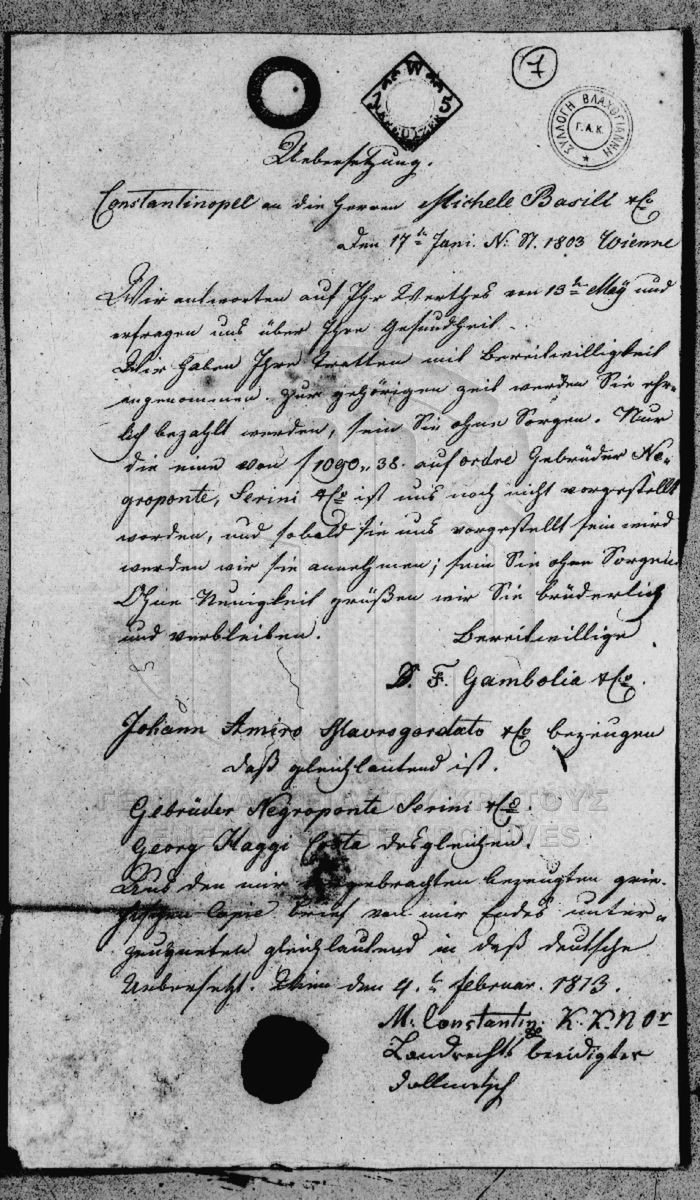 7
W
15 KREUTZER
ΣΥΛΛΟΓΗ ΒΛΑΧΟΓΙΑΝΝΗ
Γ.Α.Κ.
Uebersetzung.
Constantinopel an die Herren Michele Basili & Co
den 17ten Juni N: St. 1803 Wienne
Wir antworten auf Ihr Werthes von 13ten Maÿ und
erfragen uns über Ihre Gesundheit.
Wir haben Ihre Tratten mit Bereitwilligkeit
angenommen. Zur gehörigen Zeit werden Sie ehr-
lich bezahlt werden, sein Sie ohne Sorgen. Nur
die eine von f 1090,, 38. auf ordre Gebrüder Ne-
groponte, Serini & Co ist uns noch nicht vorgestellt
worden, und sobald sie uns vorgestellt sein wird
werden wir sie annehmen; sein Sie ohne Sorgen.
Ohne Neuigkeit grüßen wir Sie brüderlich
und verbleiben.
Bereitwillige
D. F. Gambolia & Co.
Johann Amiro Mavrogordato & Co bezeugen
daß gleichlautend ist.
Gebrüder Negroponte Serini & Co.
Georg Haggi Costa desgleichen.
Aus den mir gebrachten bezeugten grie-
chischen Copie brief von mir Endes unter-
zeugneten gleichlautend in daß deutsche
Uebersetzt. Wien den 4.t februar. 1813.
M. Constantin K. K. N Or
Landrechts beeidigter
dollmetsch